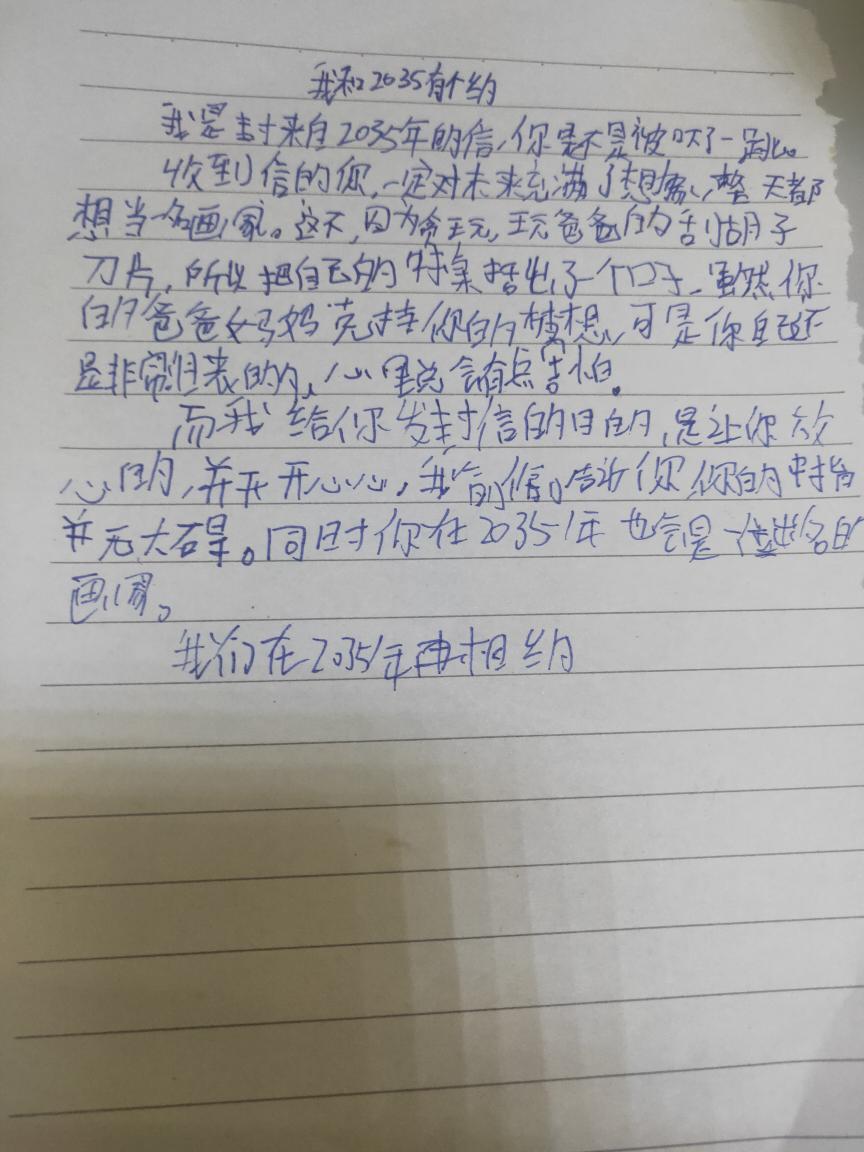 我和2035有个约
我是封来自2035年的信,你是不是被吓了一跳。
收到信的你,一定对未来充满了想象,整天都
想当名画家。这不,因为贪玩,玩爸爸的刮胡子
刀片,所以把自己的中指搭出了个口子,虽然你
的爸爸妈妈支持你的梦想,可是你自己还
是非常的,心里总会有点害怕。
而我给你发封信的目的,是让你放
心的,并开开心心,我的信告诉你,你的中指
并无大碍。同时你在2035年也会是一位出名的
画家。
我们在2035年再相约